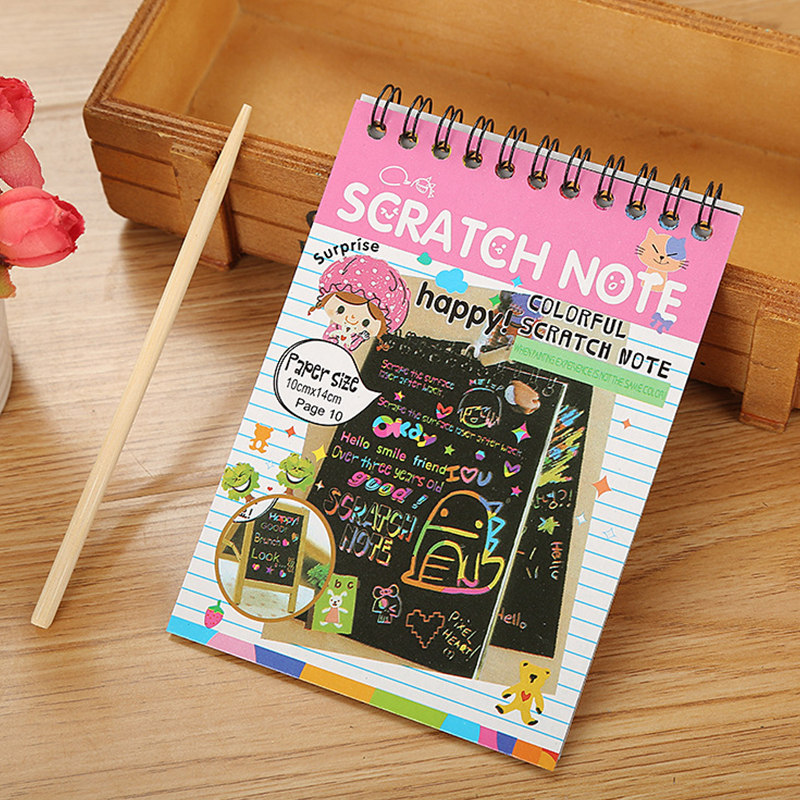 SCRATCH NOTE
Surprise
happy!
COLORFUL
SCRATCH NOTE
WHEN TANTING EXPERIENCE IS NOT THE SAME COLOR
Paper size
10cmx14cm
Page 10
Scrape the surface
layer after back.
Scrape the surface layer after back.
Okay
Hello smile friend
I U
Over three years old
good!
SCRATCH
NOTE
Happy!
GOOD!
Brunch
Look
a b c
PiXEL
HEART!
Hello